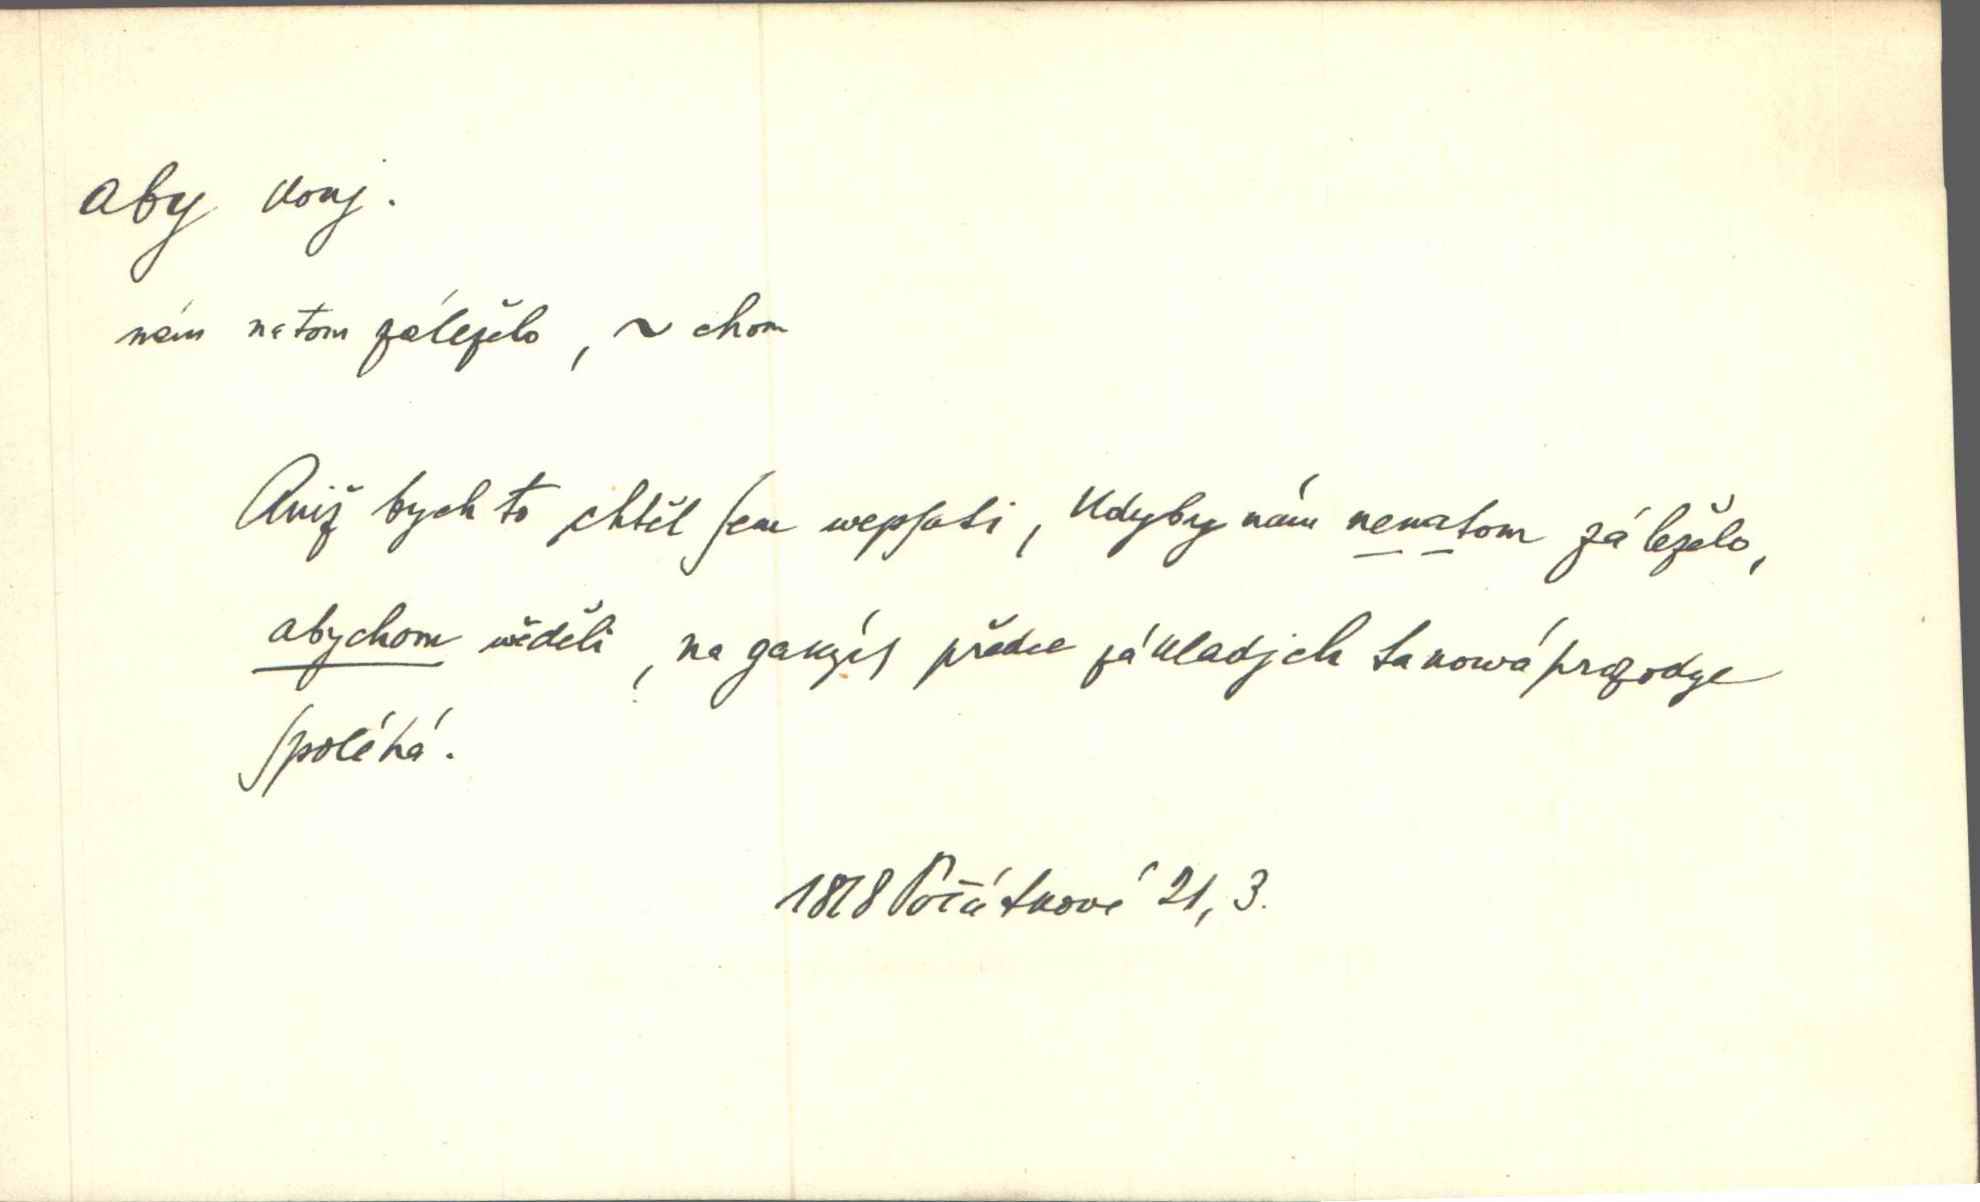 aby konj.
nám na tom záleželo, ~ chom
Aniž bych to chtěl sem wepsati, kdyby nám nenatom záleželo,
abychom wěděli, na gakýchs předce základjch taková prozodye
spoléhá.
1818 Počátkové 21, 3.